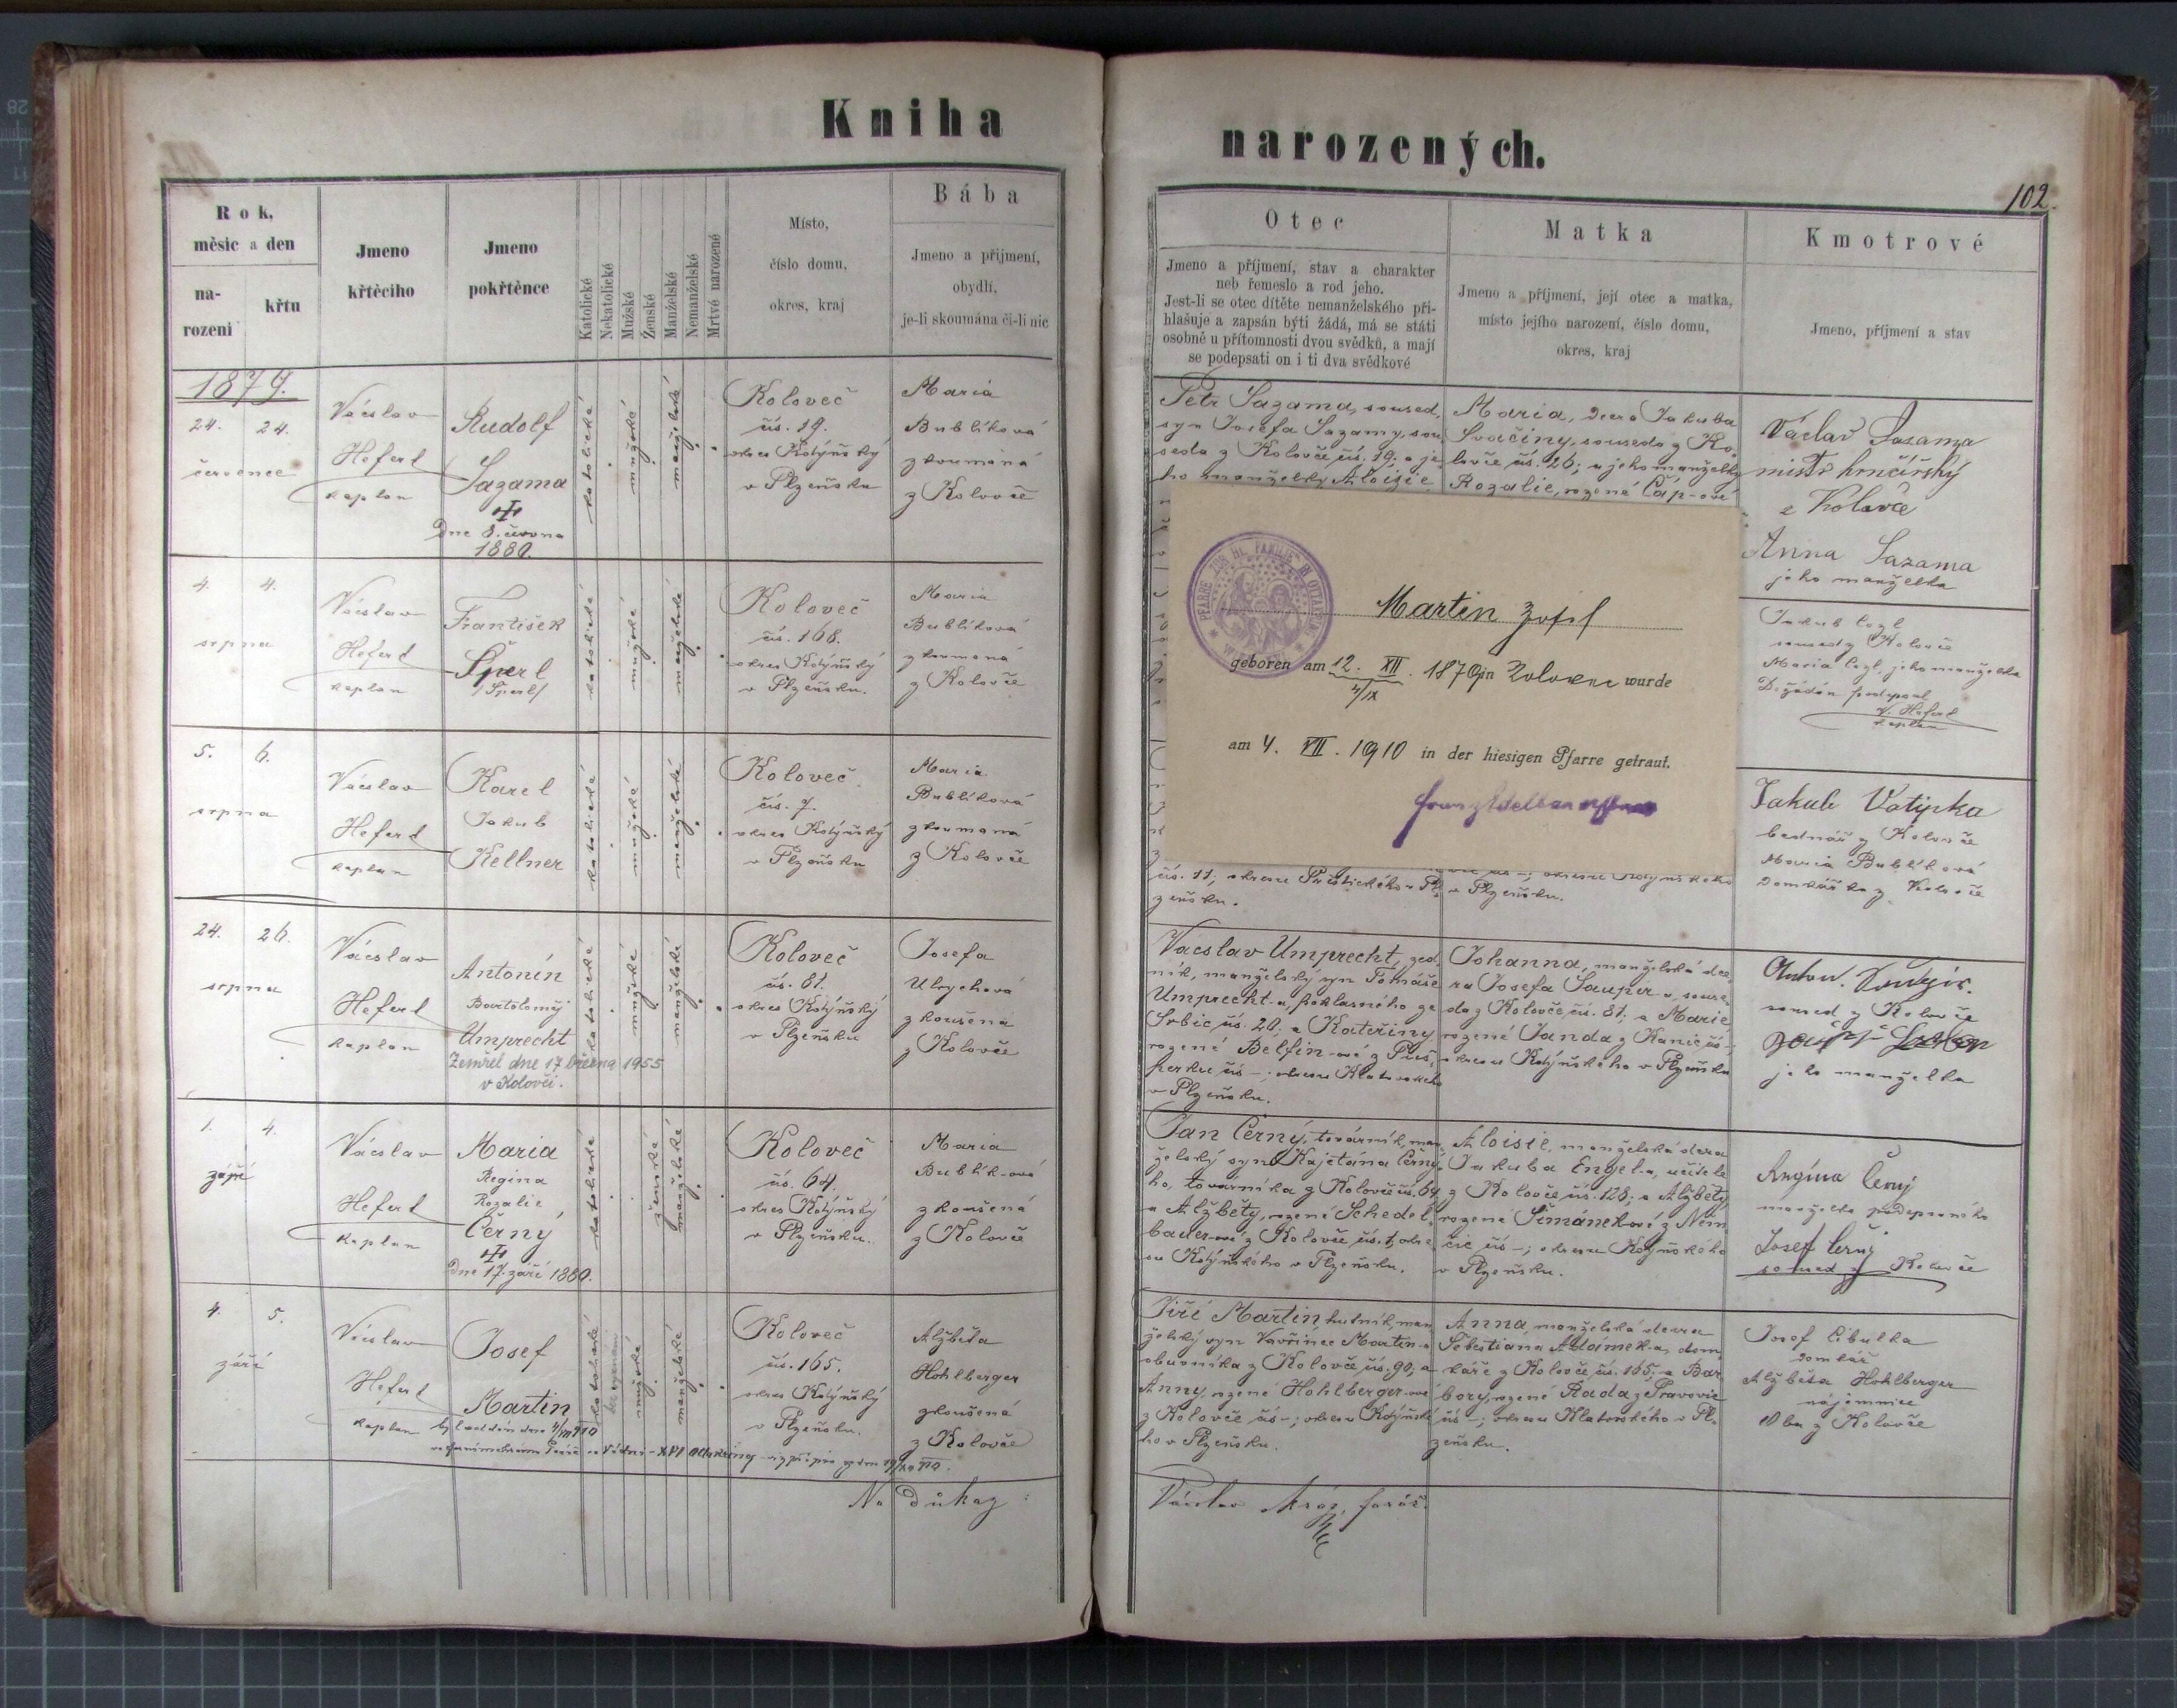 Kniha
narozených.
102.
Rok,
měsic a den
na-
rozeni
křtu
Jmeno
křtěcího
Jmeno
pokřtěnce
Katolické
Nekatolické
Mužské
Ženské
Manželské
Nemanželské
Mrtvé narozené
Místo,
číslo domu,
okres, kraj
Bába
Jmeno a přijmení,
obydlí,
je-li skoumána či-li nic
Otec
Jmeno a příjmení, stav a charakter
neb řemeslo a rod jeho.
Jest-li se otec dítěte nemanželského při-
hlašuje a zapsán býti žádá, má se státi
osobně u přítomnosti dvou svědků, a mají
se podepsati on i ti dva svědkové
Matka
Jmeno a příjmení, její otec a matka,
místo jejího narození, číslo domu,
okres, kraj
Kmotrové
Jmeno, příjmení a stav
1879.
24. 24.
července
Václav
Hefert
kaplan
Rudolf
Sazama
Dne 8. června
1880.
katolické
mužské
manželské
Koloveč
čís. 19.
okres Kdýňský
v Plzeňsku
Maria
Bublíková
zkoumaná
z Kolovče
Petr Sazama, soused,
syn Josefa Sazamy, sou
seda z Kolovče čís. 19; a je
ho manželky Aloisie
Maria, dcera Jakuba
Svačiny, souseda z Ko
lovče čís. 26; a jeho manželky
Rozalie, rozené Čáp-ové
Václav Sazama
mistr hrnčířský
z Kolovče
Anna Sazama
jeho manželka
4. 4.
srpna
Václav
Hefert
kaplan
František
Šperl
/Sperl/
katolické
mužské
manželské
Koloveč
čís. 168.
okres Kdýňský
v Plzeňsku.
Maria
Bublíková
zkoumaná
z Kolovče
Jakub Cozl
soused z Kolovče
Maria Cozl, jeho manželka
Dožádán podepsal
V. Hefert
kaplan
Martin Josef
geboren am 12. XII. 1879 in Kolovec wurde
4/IX
am 4. VII. 1910 in der hiesigen Pfarre getraut.
5. 6.
srpna
Václav
Hefert
kaplan
Karel
Jakub
Kellner
katolické
mužské
manželské
Koloveč
čís. 7.
okres Kdýňský
v Plzeňsku
Maria
Bublíková
zkoumaná
z Kolovče
čís. 11; okresu Přeštického v Pl
zeňsku.
okresu Kdýňského
v Plzeňsku.
Jakub Votipka
bednář z Kolovče
Maria Bublíková
domkářka z Kolovče
24. 26.
srpna
Václav
Hefert
kaplan
Antonín
Bartoloměj
Umprecht
Zemřel dne 17 března 1955
v Kolovči.
katolické
mužské
manželské
Koloveč
čís. 81.
okres Kdýňský
v Plzeňsku
Josefa
Ulrychová
zkoušená
z Kolovče
Vácslav Umprecht, zed
ník, manželský syn Tomáše
Umprecht-a, poklasného ze
Srbic čís. 20; a Kateřiny
rozené Belfin-ové z Puš
perku čís —; okresu Klatovského
v Plzeňsku.
Johanna, manželská dce
ra Josefa Sauper-a, souse
da z Kolovče čís. 81; a Marie
rozené Janda z Kanic čís —;
okresu Kdýňského v Plzeňsku
soused z Kolovče
jeho manželka
1. 4.
září
Václav
Hefert
kaplan
Maria
Regina
Rozalie
Černý
Dne 17. září 1880.
katolické
ženské
manželské
Koloveč
čís. 64.
okres Kdýňský
v Plzeňsku.
Maria
Bublík-ová
zkoušená
z Kolovče
Jan Černý, továrník, man
želský syn Kajetána Černé
ho, továrníka z Kolovče čís. 64
a Alžběty, rozené Schedel
bauer-ové z Kolovče čís. 1, okre
su Kdýňského v Plzeňsku.
Aloisie, manželská dcera
Jakuba Engel-a, učitele
z Kolovče čís. 128; a Alžběty
rozené Šimánekové z Něm
čic čís —; okresu Kdýňského
v Plzeňsku.
Regína Černý
manželka podepsaného
Josef Černý
soused z Kolovče
4. 5.
září
Václav
Hefert
kaplan
Josef
Martin
byl oddán dne 4/VII 1910
katolické
bez vyznání
mužské
manželské
Koloveč
čís. 165.
okres Kdýňský
v Plzeňsku.
Alžběta
Hohlberger
zkoušená
z Kolovče
Jiří Martin hutník, man
želský syn Vavřince Martin-a
obuvníka z Kolovče čís. 90; a
Anny, rozené Hohlberger-ové
z Kolovče čís —; okresu Kdýňské
ho v Plzeňsku.
Anna, manželská dcera
Šebestiána Adámek-a, dom
káře z Kolovče čís. 165; a Bar
bory, rozené Rada z Pavovic
čís —; okresu Klatovského v Pl
zeňsku.
Josef Cibulka
domkář
Alžběta Hohlberger
nájemnice
oba z Kolovče
Na důkaz:
Václav Král, farář.